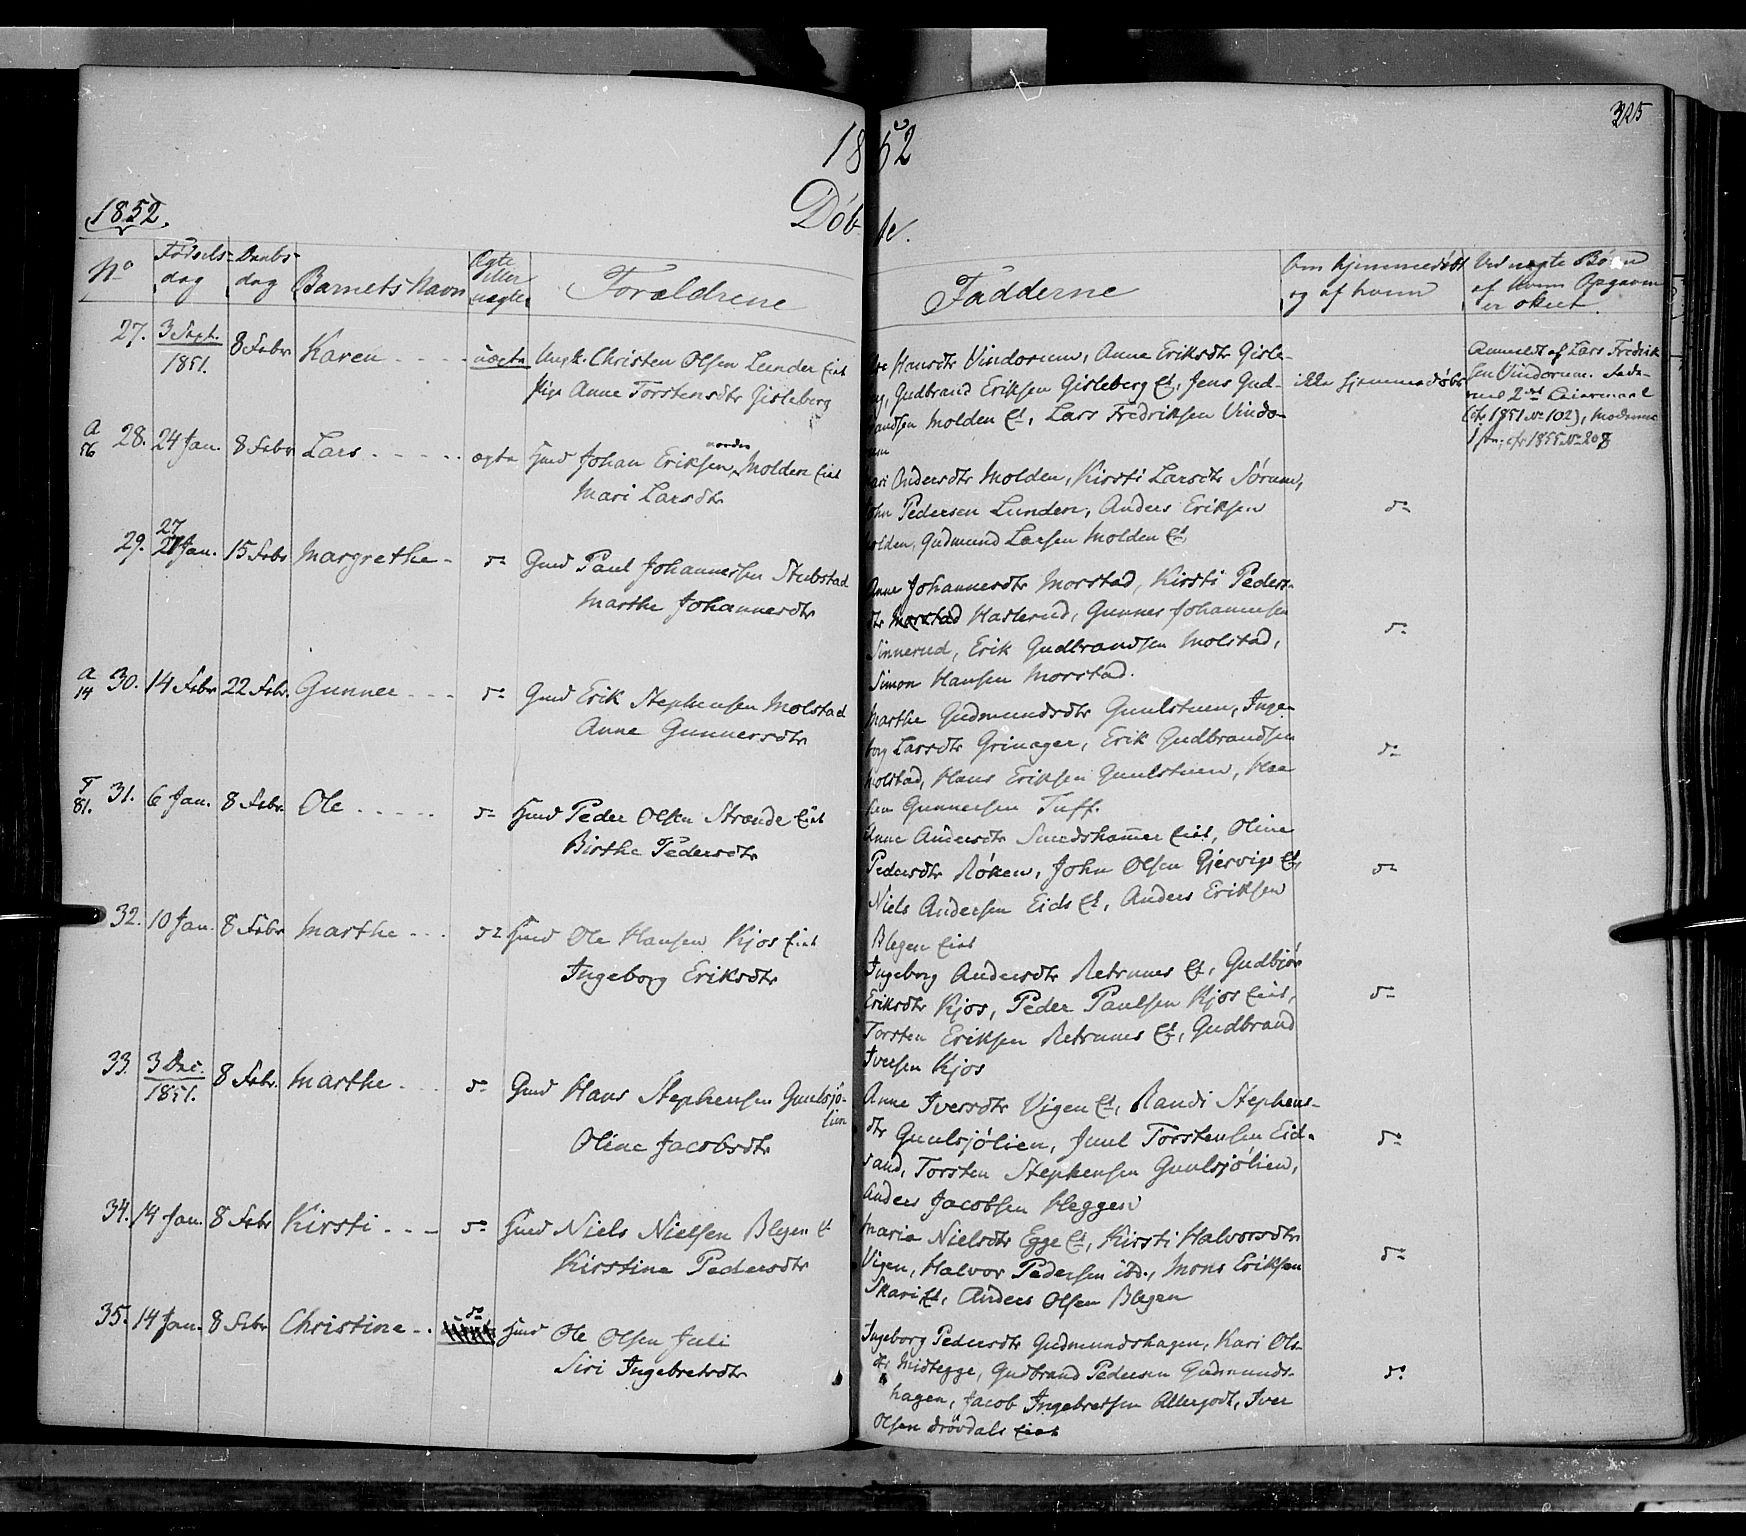 325
1852
1852.
Døbte.
No
Fødsels-
dag
Daabs-
dag
Barnets Navn
Ægte
eller
uægte
Forældrene
Fadderne
Om hjemmedøbt
og af hvem
Ved uægte Børn
af hvem Opgaven
er skeet.
27. 3 Sept. 1851. 8 Febr Karen - - - - uægte Ungk. Christen Olsen Lunder Eiet
Pige Anne Torstensdtr Gisleberg
Hansdtr Vindorum, Anne Eriksdtr Gisle-
Gudbrand Eriksen Gisleberg Et, Jens Gud-
brandsen Molden Et, Lars Fredriksen Vindo-
rum
ikke hjemmedøbt
Anmeldt af Lars Fredrik
sen Vindorum. Fade-
rens 2det Leiermaal
(cfr 1851 No 102), Moderens
1ste, cfr 1855 No 208
A
56
28. 24 Jan. 8 Febr Lars - - - - - ægte Gmd Johan Eriksen nordre Molden Eiet
Mari Larsdtr
Kari Andersdtr Molden, Kirsti Larsdtr Sørum,
John Pedersen Lunden, Anders Eriksen
Molden, Gudmund Larsen Molden Et
do
29. 27 Jan. 15 Febr Margrethe - do Gmd Paul Johannessen Stubstad
Marthe Johannesdtr
Anne Johannesdtr Morstad, Kirsti Peders-
dtr Morstad Haslerud, Gunner Johannesen
Sinnerud, Erik Gudbrandsen Molstad,
Simon Hansen Morstad.
do
A
14
30. 14 Febr 22 Febr. Gunner - - - do Gmd Erik Stephensen Molstad
Anne Gunnersdtr
Marthe Gudmundsdtr Gunlstuen, Inge-
borg Larsdtr Grinager, Erik Gudbrandsen
Molstad, Hans Eriksen Gunlstuen, Haa
Gunnersen Tuff.
do
T
81.
31. 6 Jan. 8 Febr. Ole - - - - - do Hmd Peder Olsen Strande Eiet
Birthe Pedersdtr
Anne Andersdtr Smedshammer Eiet, Oline
Pedersdtr Røken, John Olsen Gjervigs Et,
Niels Andersen Eids Et, Anders Eriksen
Blegen Eiet
do
32. 10 Jan. 8 Febr Marthe - - - do Hmd Ole Hansen Kjos Eiet
Ingeborg Eriksdtr
Ingeborg Andersdtr Retrumes Et, Gudbjør
Eriksdtr Kjos, Peder Paulsen Kjos Eiet,
Torsten Eriksen Retrumes Et, Gudbrand
Iversen Kjos
do
33. 3 Dec. 1851. 8 Febr. Marthe - - - do Gmd Hans Stephensen Gunlsjø-
lien
Oline Jacobsdtr
Anne Iversdtr Vigen Et, Randi Stephens-
dtr Gunlsjølien, Juul Torstensen Eid-
sand, Torsten Stephensen Gunlsjølien,
Anders Jacobsen Heggen
do
34. 14 Jan. 8 Febr Kirsti - - - do Hmd Niels Nielsen Blegen Et
Kirstine Pedersdtr
Marie Nielsdtr Egge Et, Kirsti Halvorsdtr
Vigen, Halvor Pedersen ibd., Mons Eriksen
Skari Et, Anders Olsen Blegen
do
35. 14 Jan. 8 Febr Christine - - do Hmd Ole Olsen Juli
Siri Ingebretsdtr
Ingeborg Pedersdtr Gudmundshagen, Kari Ols-
dtr Midtegge, Gudbrand Pedersen Gudmunds-
hagen, Jacob Ingebretsen Allergodt, Iver
Olsen Drøvdals Eiet
do